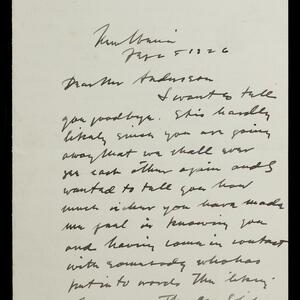 Sept 5 1926
Dear Mr Anderson
I want to tell
you goodbye. It is hardly
likely since you are going
away that we shall ever
see each other again and I
wanted to tell you how
much richer you have made
me feel in knowing you
and having come in contact
with somebody who has
put into words the